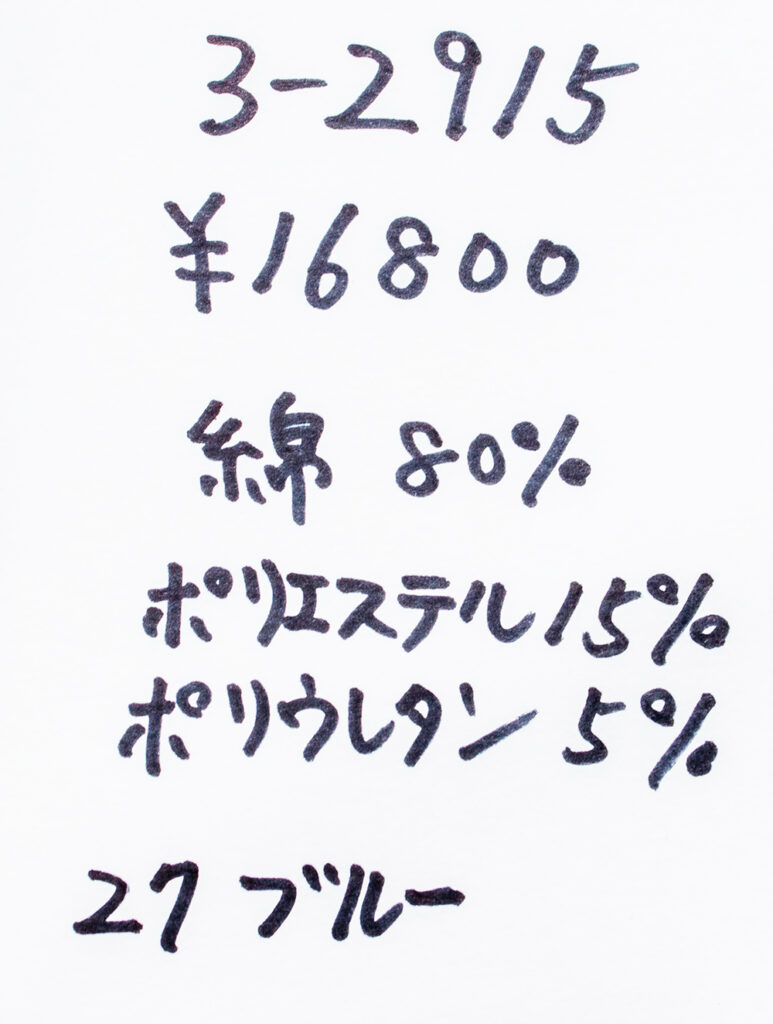 3-2915
¥16800
綿 80%
ポリエステル 15%
ポリウレタン 5%
27 ブルー